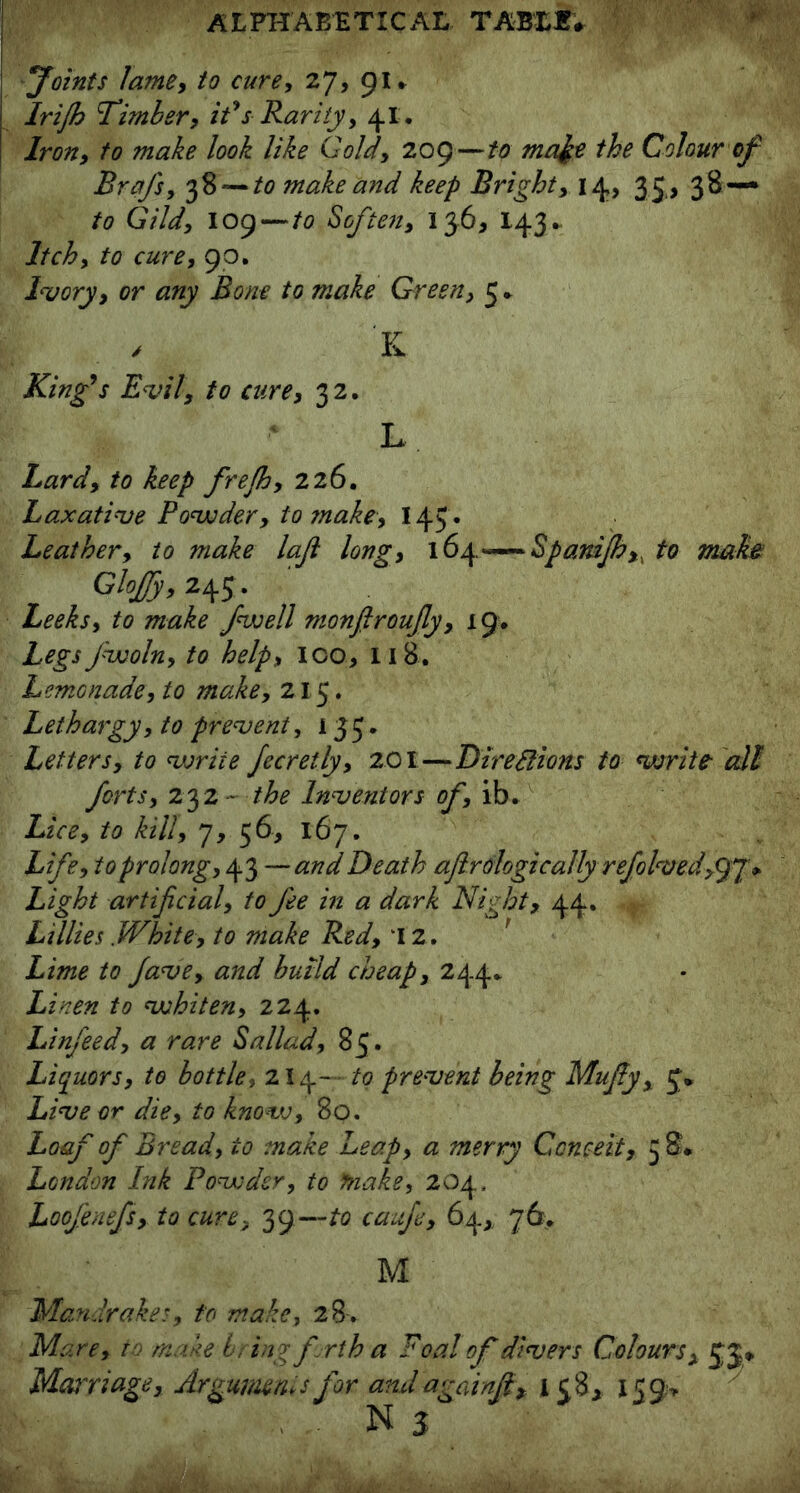 ALPHABETICAL TABLE.
Joints lame, to cure, 27, 91.
Iriſh Timber, it's Rarity, 41.
Iron, to make look like Gold, 209—to make the Colour of
Braſs, 38—to make and keep Bright, 14, 35, 38—
to Gild, 109—to Soften, 136, 143.
Itch, to cure, 90.
Ivory, or any Bone to make Green, 5.
K
King's Evil, to cure, 32.
L
Lard, to keep freſh, 226.
Laxative Powder, to make, 145.
Leather, to make laſt long, 164—Spaniſh, to make
Gloſſy, 245.
Leeks, to make ſwell monſtrouſly, 19.
Legs ſwoln, to help, 100, 118.
Lemonade, to make, 215.
Lethargy, to prevent, 135.
Letters, to write ſecretly, 201—Directions to write all
ſorts, 232- the Inventors of, ib.
Lice, to kill, 7, 56, 167.
Life, to prolong, 43—and Death aſtrologically reſolved, 97.
Light artificial, to ſee in a dark Night, 44.
Lillies White, to make Red, 12.
Lime to ſave, and build cheap, 244.
Linen to whiten, 224.
Linſeed, a rare Sallad, 85.
Liquors, to bottle, 214- to prevent being Muſty, 5.
Live or die, to know, 80.
Loaf of Bread, to make Leap, a merry Conceit, 58.
London Ink Powder, to make, 204.
Looſeneſs, to cure, 39—to cauſe, 64, 76.
M
Mandrakes, to make, 28.
Mare, to make bring forth a Foal of divers Colours, 53.
Marriage, Arguments for and againſt, 158, 159.
N 3